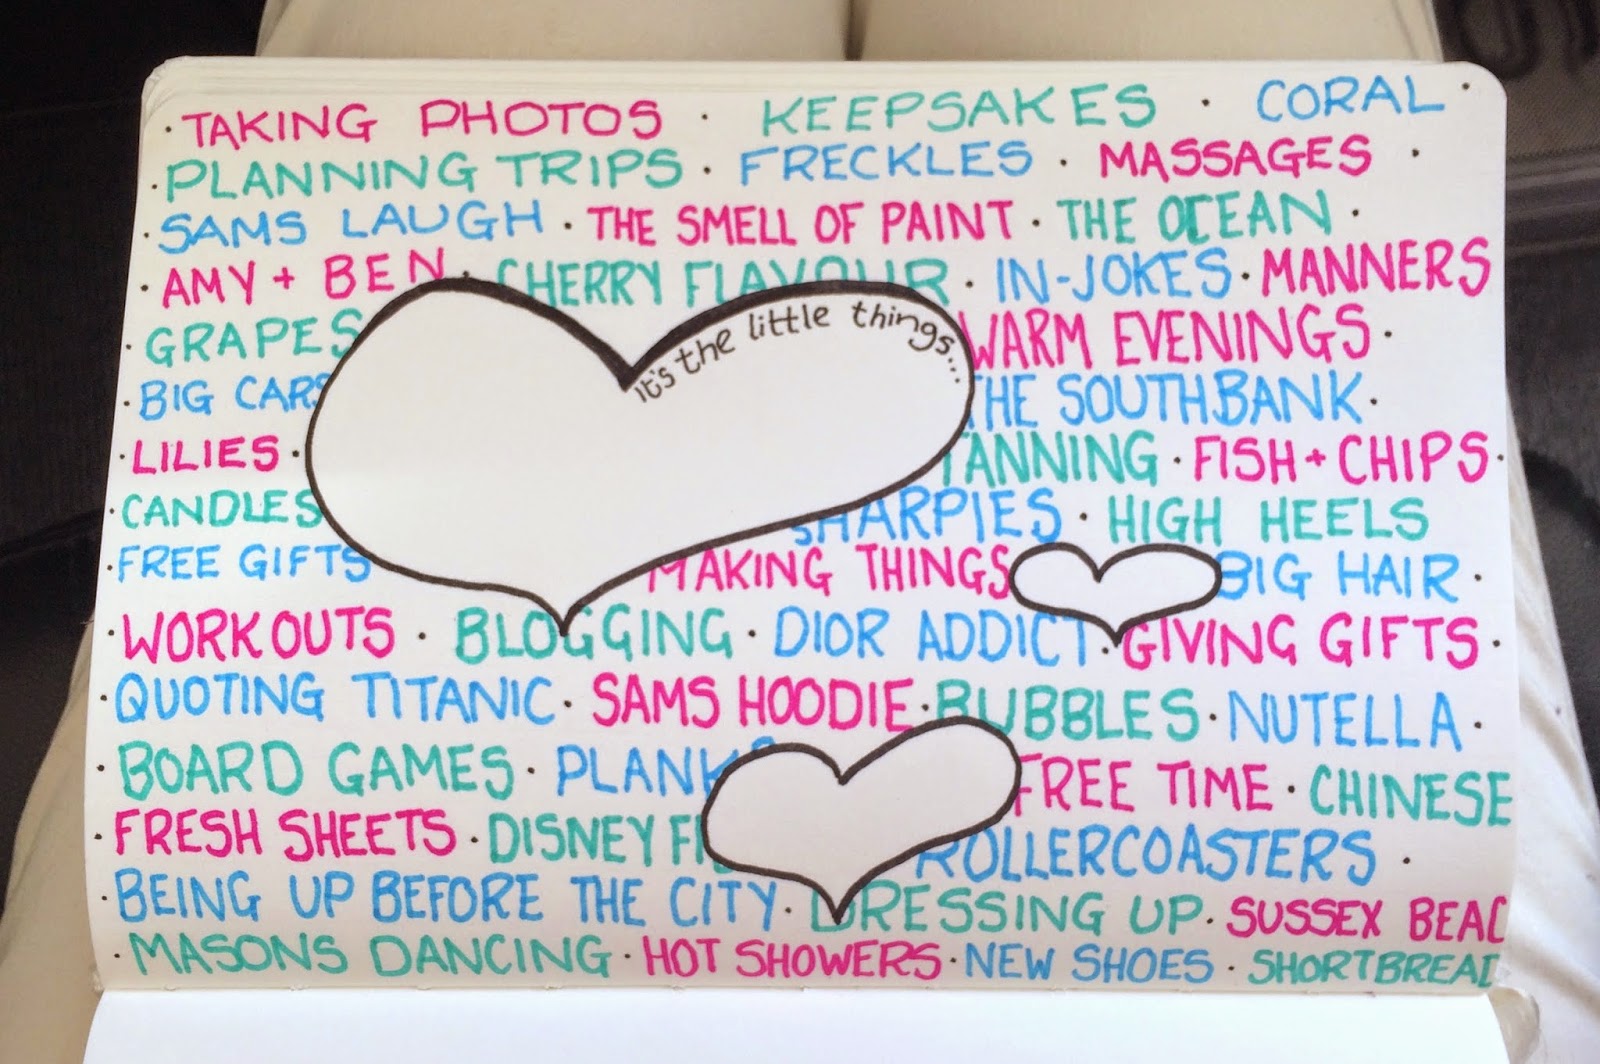 · TAKING PHOTOS · KEEPSAKES · CORAL ·
· PLANNING TRIPS · FRECKLES · MASSAGES ·
· SAMS LAUGH · THE SMELL OF PAINT · THE OCEAN ·
· AMY + BEN · CHERRY FLAVOUR · IN-JOKES · MANNERS
· GRAPES It's the little things... WARM EVENINGS ·
· BIG CARS THE SOUTHBANK ·
· LILIES · TANNING · FISH + CHIPS ·
· CANDLES SHARPIES · HIGH HEELS
· FREE GIFTS MAKING THINGS BIG HAIR ·
· WORKOUTS · BLOGGING · DIOR ADDICT · GIVING GIFTS ·
· QUOTING TITANIC · SAMS HOODIE · BUBBLES · NUTELLA ·
· BOARD GAMES · PLANKS FREE TIME · CHINESE
· FRESH SHEETS · DISNEY ROLLERCOASTERS ·
· BEING UP BEFORE THE CITY · DRESSING UP · SUSSEX BEAC
· MASONS DANCING · HOT SHOWERS · NEW SHOES · SHORTBREAD